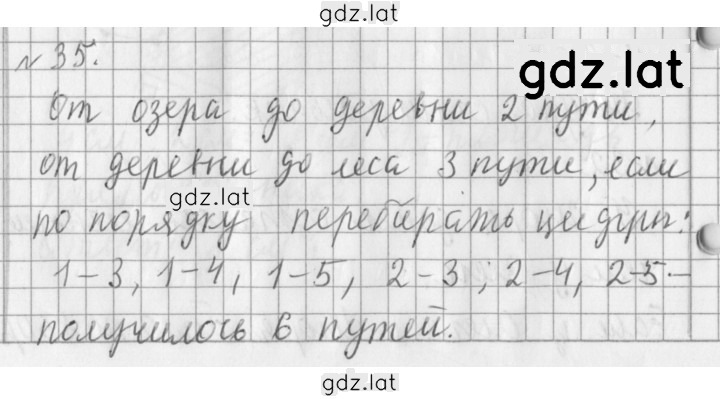 gdz.lat
№ 35.
gdz.lat
От озера до деревни 2 пути,
от деревни до леса 3 пути, если
gdz.lat
по порядку перебирать цифры:
1-3, 1-4, 1-5, 2-3; 2-4, 2-5-
получилось 6 путей.
gdz.lat